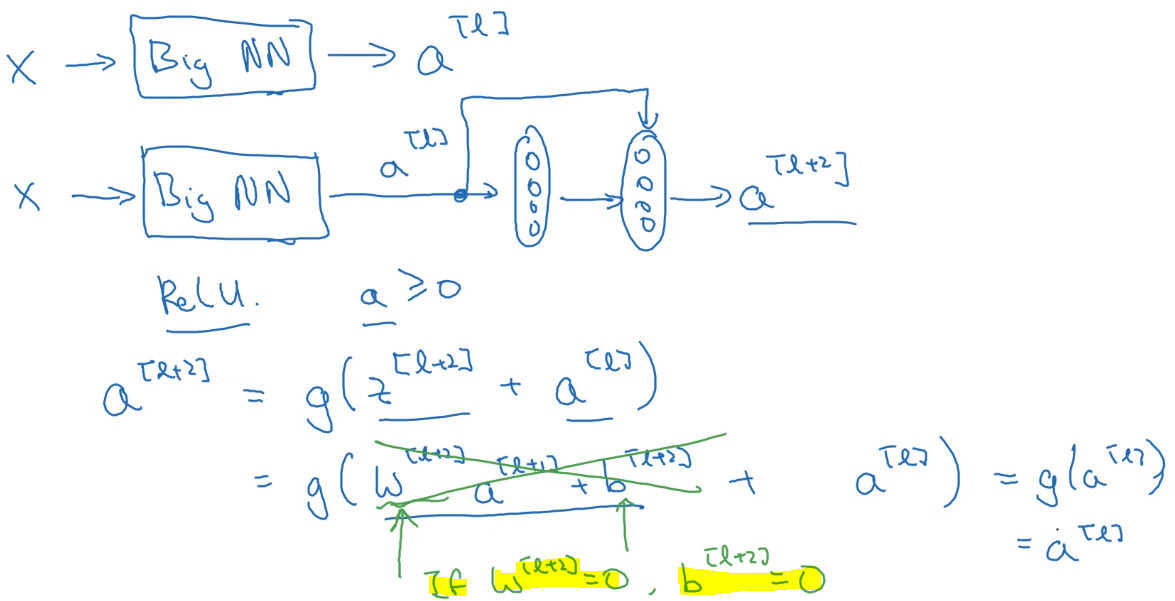 X → Big NN → a^[l]
X → Big NN a^[l] → → a^[l+2]
ReLU. a ≥ 0
a^[l+2] = g(z^[l+2] + a^[l])
= g(W^[l+2] a^[l+1] + b^[l+2] + a^[l]) = g(a^[l])
= a^[l]
If W^[l+2] = 0, b^[l+2] = 0